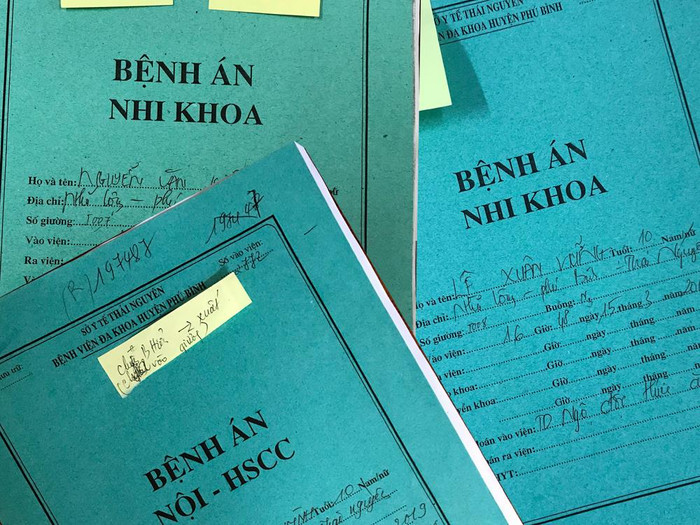 BỆNH ÁN
NHI KHOA
Họ và tên: NGUYỄN VĂN
Địa chỉ: Nhã Lộng - phú
Số giường: 1007
Vào viện:
Ra viện:
SỞ Y TẾ THÁI NGUYÊN
VIỆN ĐA KHOA HUYỆN PHÚ BÌNH
BỆNH ÁN
NHI KHOA
Họ và tên: LÊ XUÂN Tuổi: 10 Nam/nữ
Địa chỉ: Nhã Lộng - phú Bình Thái Nguyên
Số giường: 1008 Buồng:
vào viện: 16 Giờ: 48 ngày 15 tháng 3 năm 20
viện: Giờ ngày tháng
khoa: Giờ ngày tháng
Giờ ngày tháng
đoán vào viện: TD Ngộ độc thức ăn
đoán ra viện:
HYT:
(B) 197487
Số vào viện:
SỞ Y TẾ THÁI NGUYÊN
BỆNH VIỆN ĐA KHOA HUYỆN PHÚ BÌNH
xuất
vào giường
BỆNH ÁN
NỘI - HSCC
Tuổi: 10 Nam/nữ
Thái Nguyên
2019